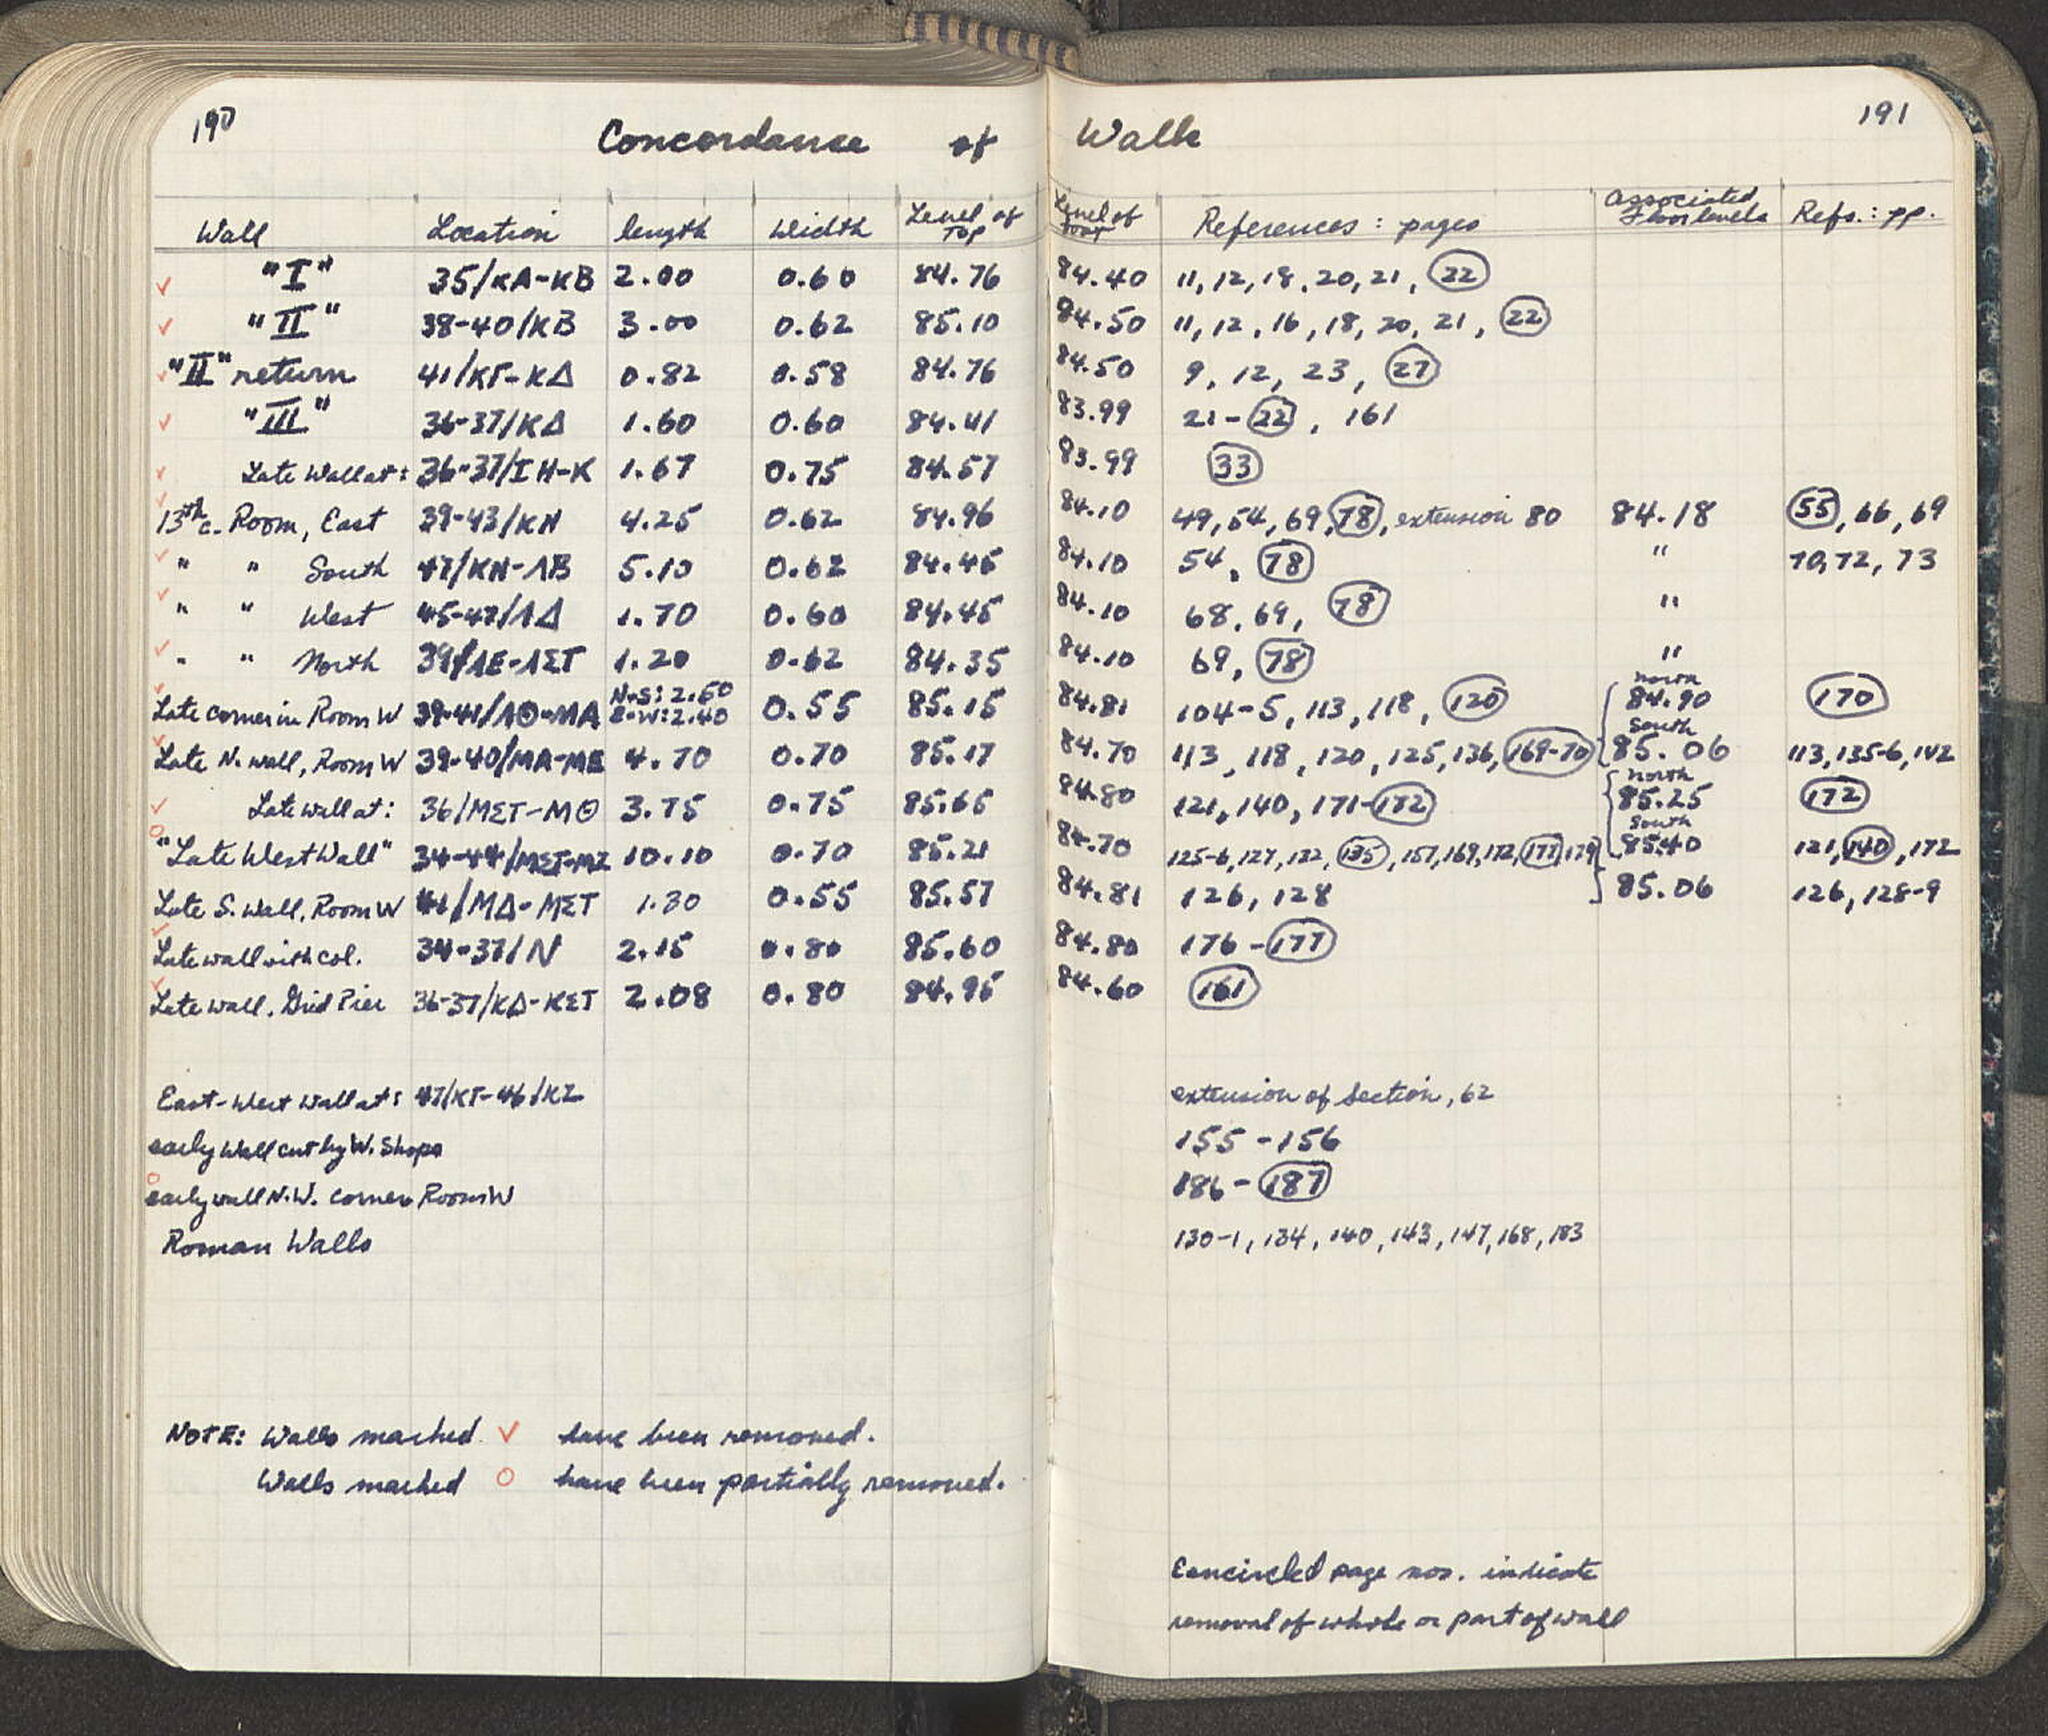 190
Concordance of Walls
191
Wall Location length Width Level of Top Level of Foot References : pages Associated Floor levels Refs. : pp.
✓ "I" 35/ΚΑ-ΚΒ 2.00 0.60 84.76 84.40 11, 12, 18, 20, 21, 22
✓ "II" 38-40/ΚΒ 3.00 0.62 85.10 84.50 11, 12, 16, 18, 20, 21, 22
✓ "II" return 41/ΚΓ-ΚΔ 0.82 0.58 84.76 84.50 9, 12, 23, 27
✓ "III" 36-37/ΚΔ 1.60 0.60 84.41 83.99 21-22, 161
✓ Late Wall at: 36-37/ΙΗ-Κ 1.67 0.75 84.57 83.99 33
✓ 13th c. Room, East 39-43/ΚΗ 4.25 0.62 84.96 84.10 49, 54, 69, 78, extension 80 84.18 55, 66, 69
✓ " " South 47/ΚΗ-ΛΒ 5.10 0.62 84.45 84.10 54, 78 " 70, 72, 73
✓ " " West 45-47/ΛΔ 1.70 0.60 84.45 84.10 68, 69, 78 "
✓ " " North 39/ΛΕ-ΛΣΤ 1.20 0.62 84.35 84.10 69, 78 "
✓ Late corner in Room W 39-41/ΛΘ-ΜΑ N-S: 2.60 E-W: 2.40 0.55 85.15 84.81 104-5, 113, 118, 120 north 84.90 170
✓ Late N. wall, Room W 39-40/ΜΑ-ΜΕ 4.70 0.70 85.17 84.70 113, 118, 120, 125, 136, 169-70 South 85.06 113, 135-6, 142
✓ Late wall at: 36/ΜΣΤ-ΜΘ 3.75 0.75 85.65 84.80 121, 140, 171-172 north 85.25 172
○ "Late West Wall" 34-44/ΜΣΤ-ΜΖ 10.10 0.70 85.21 84.70 125-6, 127, 132, 135, 157, 169, 172, 177, 179 South 85.40 121, 140, 172
Late S. Wall, Room W 41/ΜΔ-ΜΣΤ 1.30 0.55 85.57 84.81 126, 128 85.06 126, 128-9
✓ Late wall with col. 34-37/Ν 2.15 0.80 85.60 84.80 176-177
✓ Late wall, Grid Pier 36-37/ΚΔ-ΚΣΤ 2.08 0.80 84.95 84.60 161
East-West wall at: 47/ΚΓ-46/ΚΖ extension of Section, 62
early wall cut by W. Shops 155-156
○ early wall N.W. corner Room W 186-187
Roman Walls 130-1, 134, 140, 143, 147, 168, 183
NOTE: Walls marked ✓ have been removed.
Walls marked ○ have been partially removed.
Eancircled page nos. indicate
removal of whole or part of wall